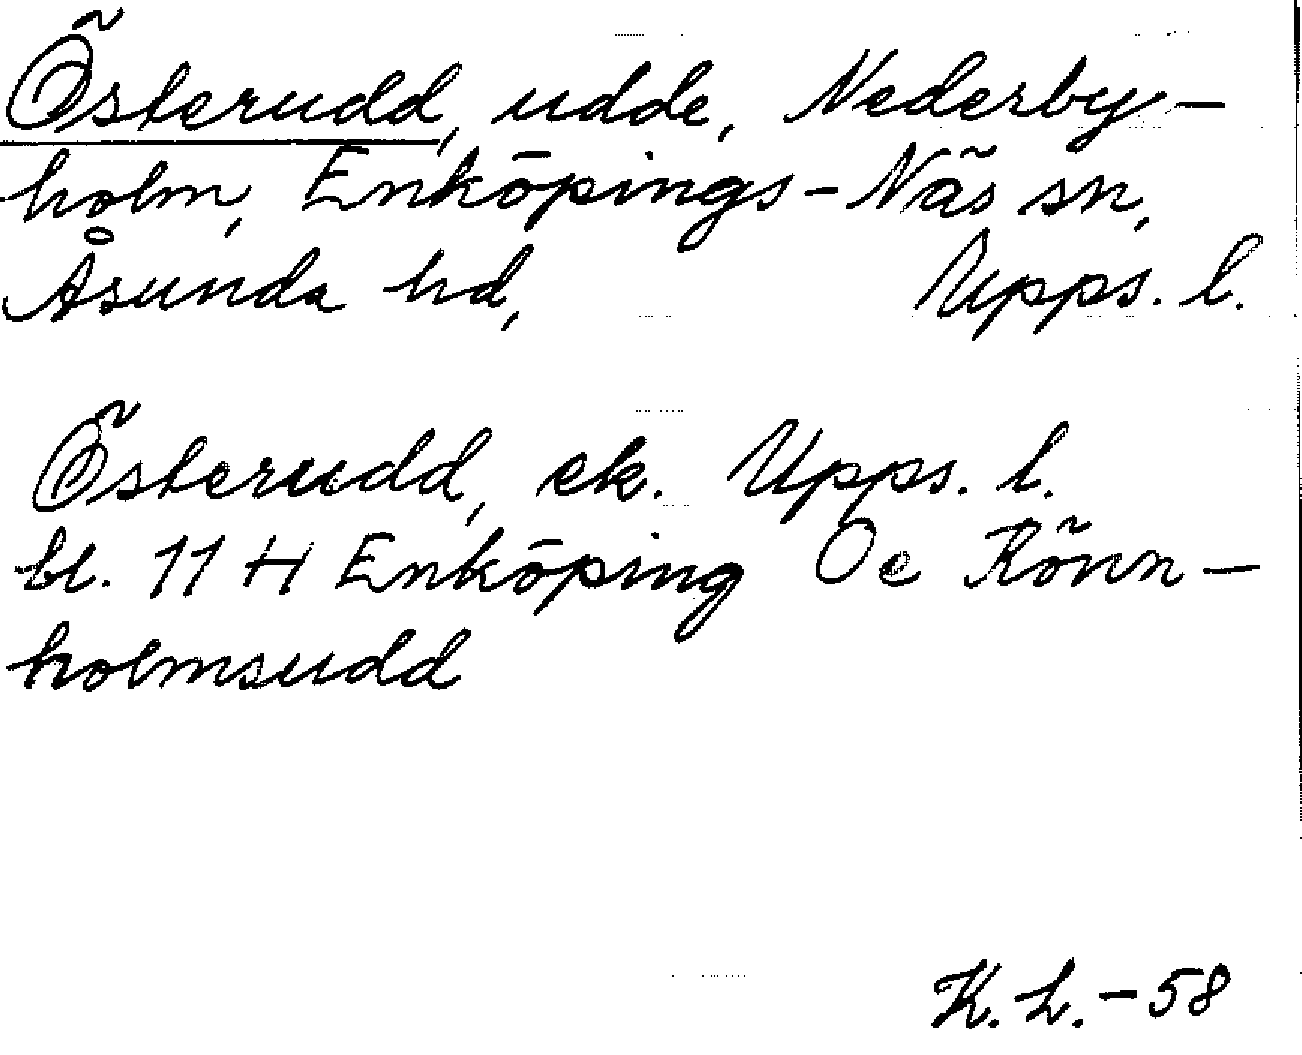 Österudd, udde, Nederby-
holm, Enköpings-Näs sn,
Åsunda hd, Upps. l.
Österudd, ek. Upps. l.
bl. 11 H Enköping Oe Rönn-
holmsudd
K. L. - 58